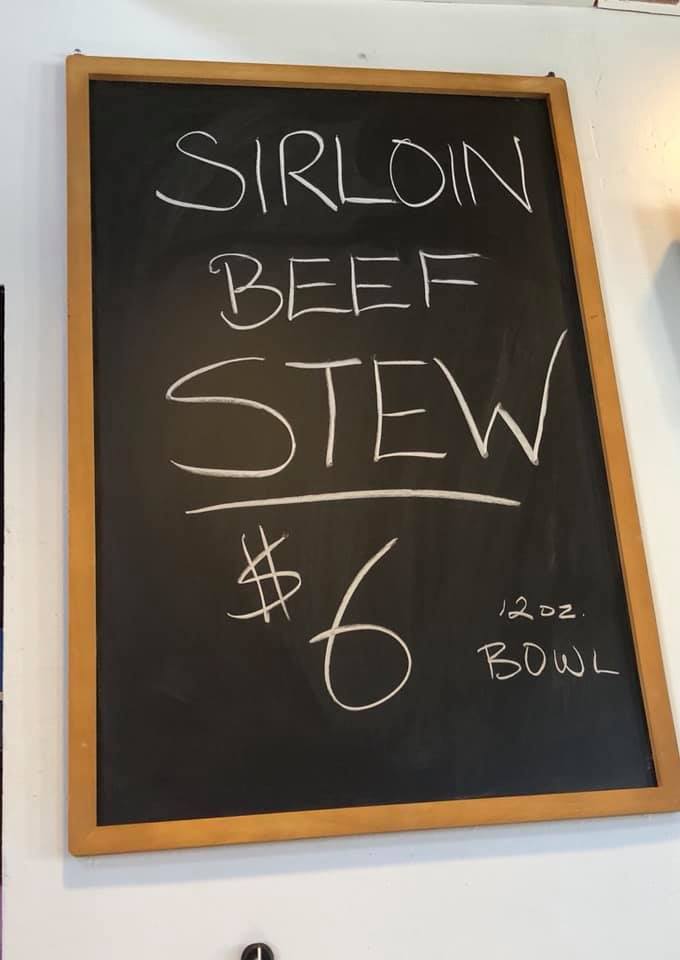 SIRLOIN
BEEF
STEW
$6
12 oz.
BOWL